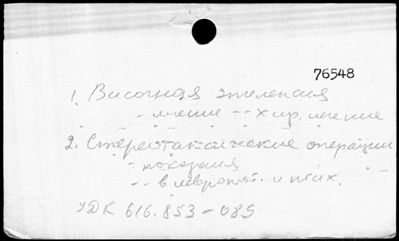 76548
1. Височная эпилепсия
- лечение -- хир. лечение
2. Стереотаксические операции
- показания
-- в невропат. и псих.
УДК 616.853-089